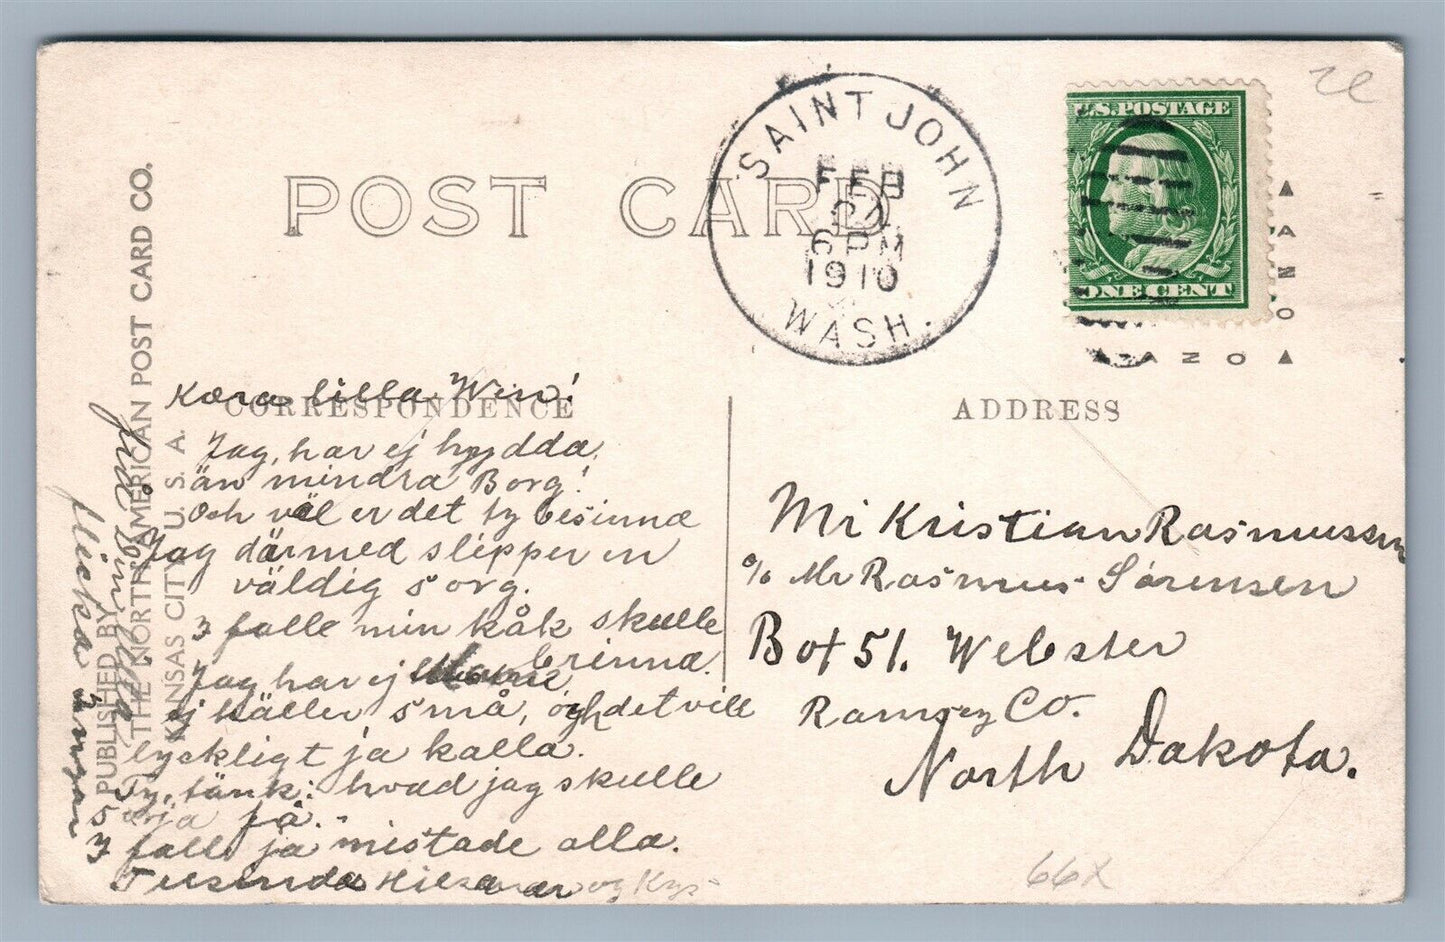 POST CARD
SAINT JOHN
FEB
24
6 PM
1910
WASH.
U.S. POSTAGE
ONE CENT
AZO
AZO
CORRESPONDENCE
ADDRESS
PUBLISHED BY
THE NORTH AMERICAN POST CARD CO.
KANSAS CITY U. S. A.
Kæra lilla Wen!
Jag, har ej hydda,
än mindra Borg!
Och väl er det ty besinna
Jag därmed slipper en
väldig sorg.
I falle min kåk skulle
brinna.
Jag har ej
ej käller små, og det vill
lyckligt ja kalla.
Ty, tänk: hvad jag skulle
få.
I falle ja mistade alla.
Tusinda og Kys
Mr Kristian Rasmussen
c/o Mr Rasmus Sørensen
Box 51. Webster
Ramsey Co.
North Dakota.
66x